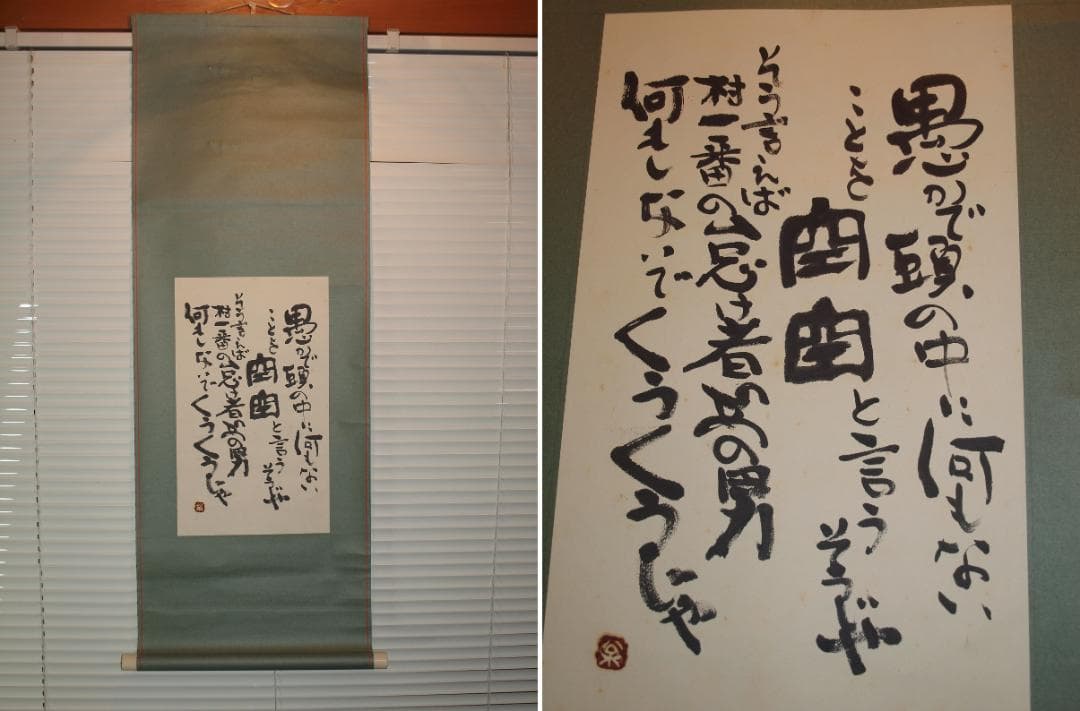 愚かで頭の中に何もない
ことを空空と言うそうじゃ
そう言えば
村一番の怠け者あの男
何もしないでくうくうじゃ
愚かで頭の中に何もない
ことを空空と言うそうじゃ
そう言えば
村一番の怠け者あの男
何もしないでくうくうじゃ